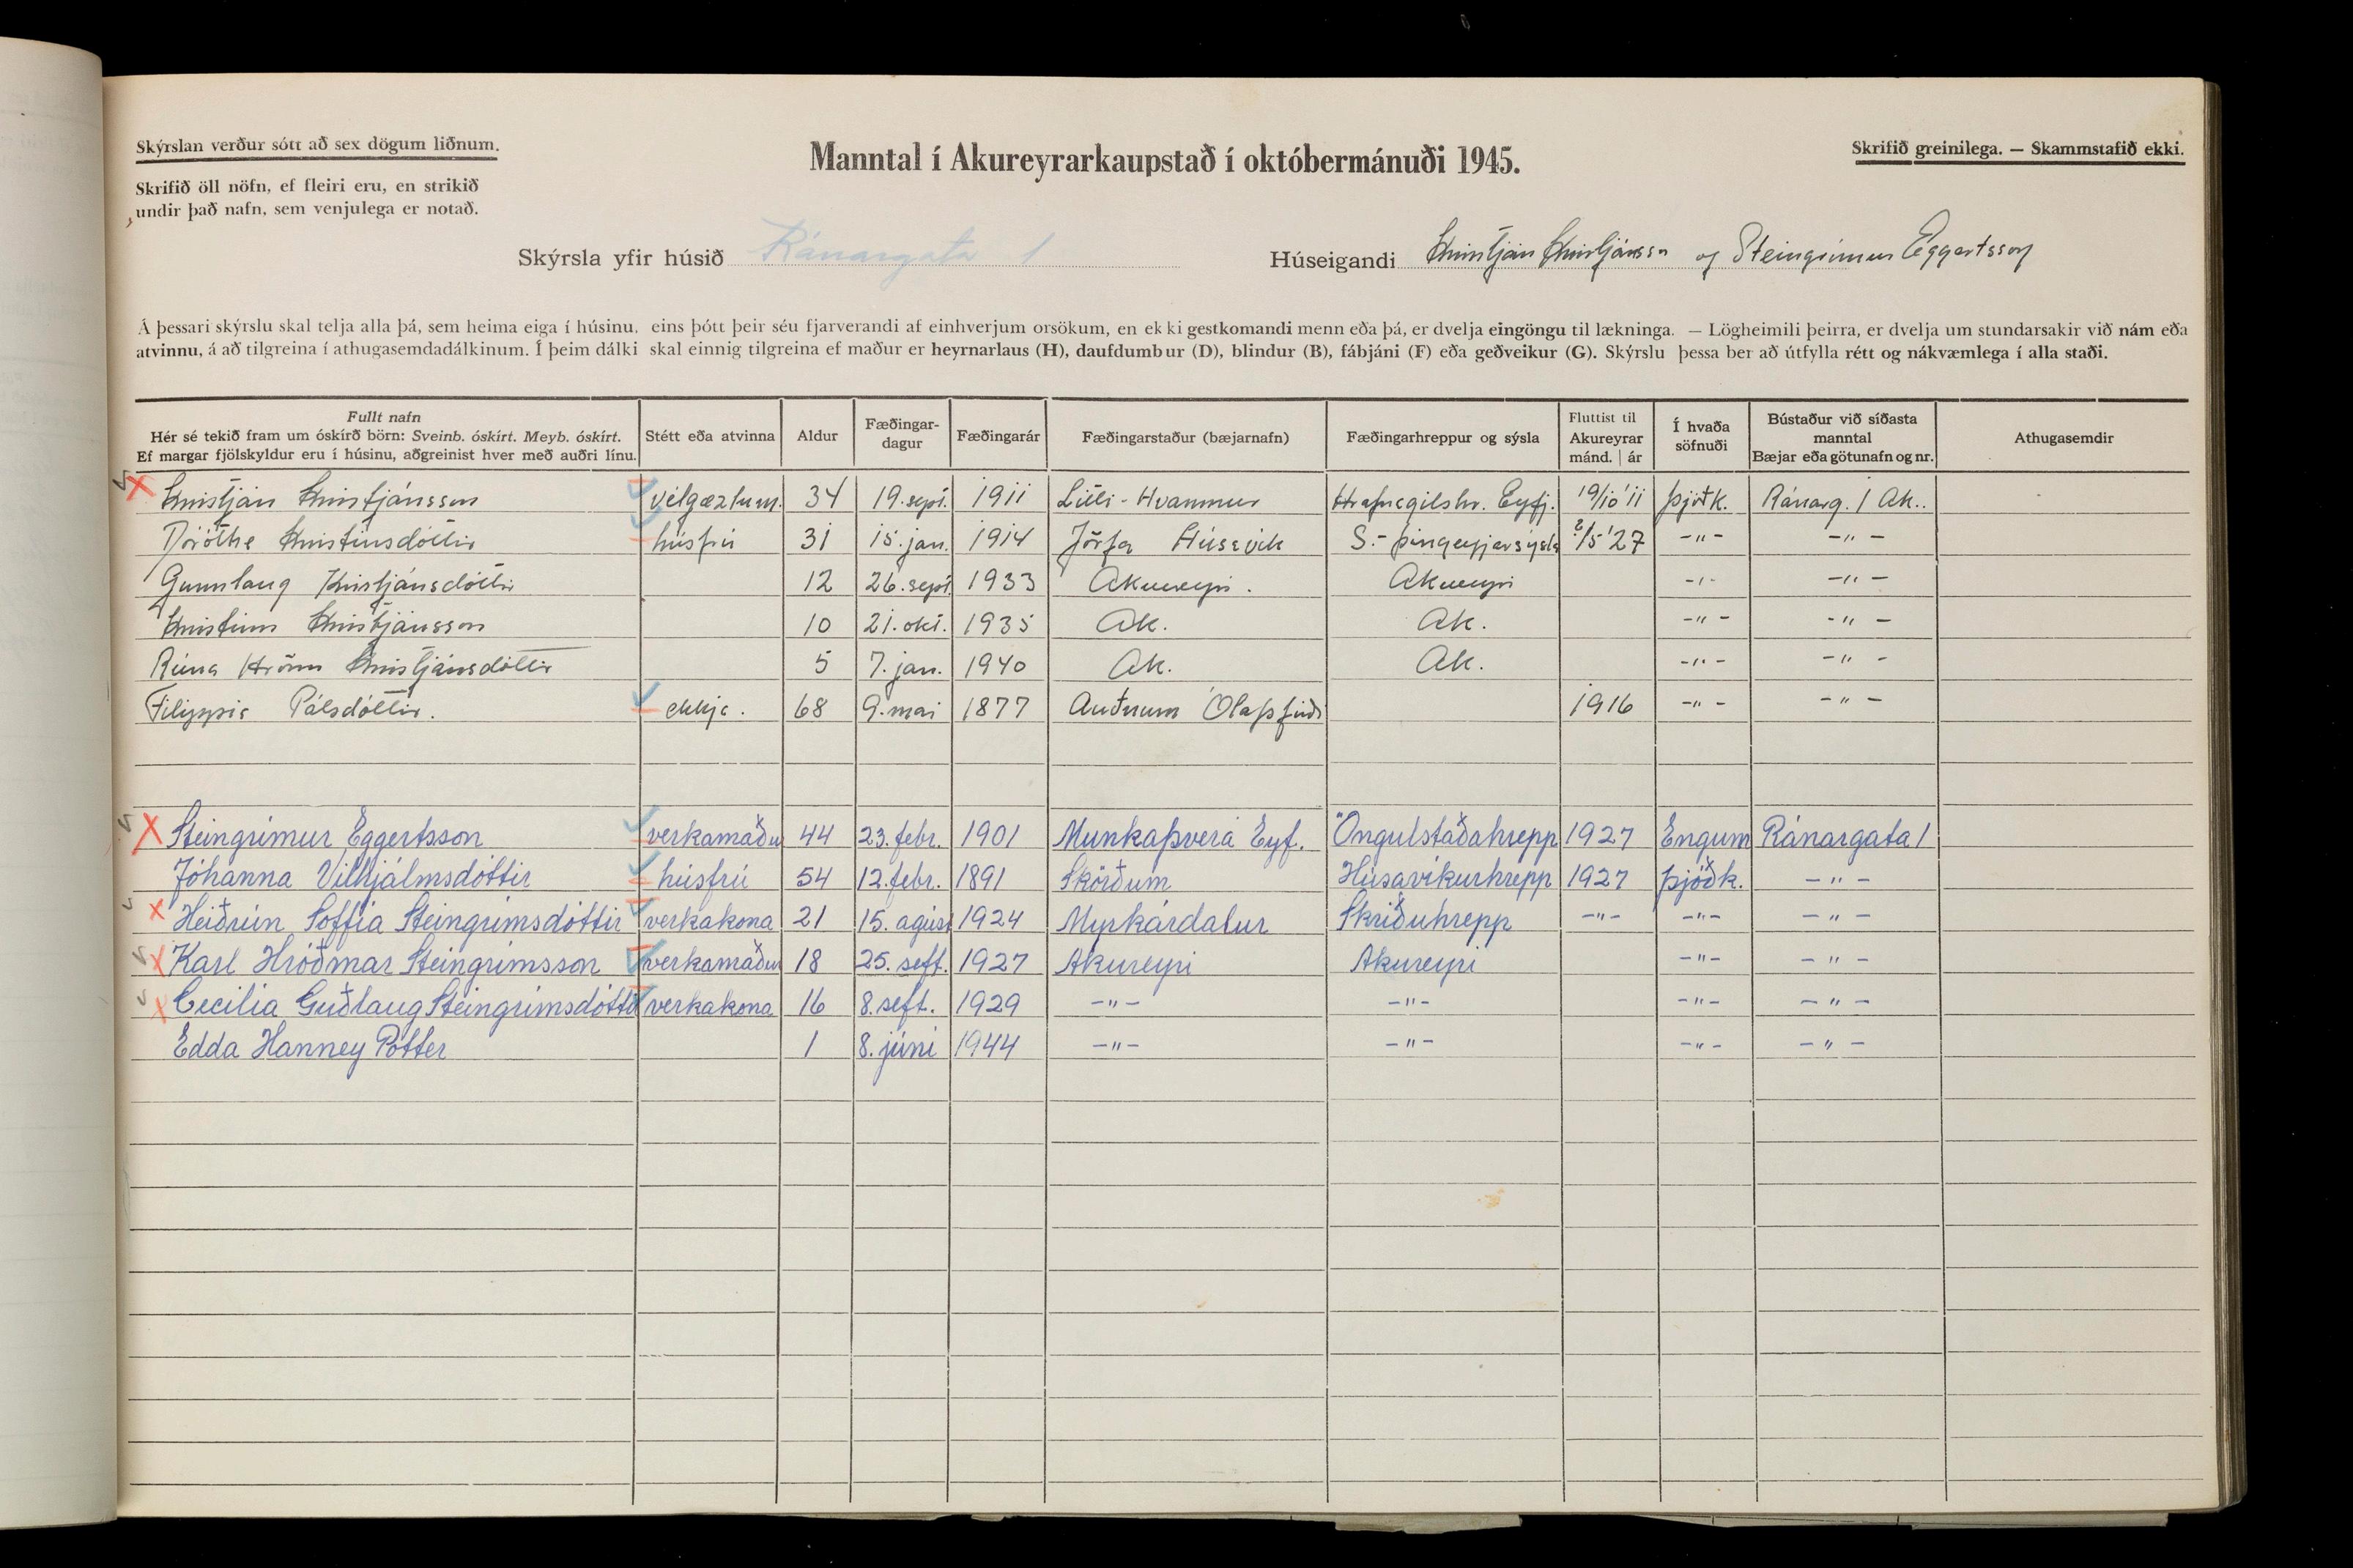 Skýrslan verður sótt að sex dögum liðnum.
Manntal í Akureyrarkaupstað í októbermánuði 1945.
Skrifið greinilega. — Skammstafið ekki.
Skrifið öll nöfn, ef fleiri eru, en strikið
undir það nafn, sem venjulega er notað.
Skýrsla yfir húsið Ránargata 1
Húseigandi Kristján Kristjánsson og Steingrímur Eggertsson
Á þessari skýrslu skal telja alla þá, sem heima eiga í húsinu, eins þótt þeir séu fjarverandi af einhverjum orsökum, en ekki gestkomandi menn eða þá, er dvelja eingöngu til lækninga. — Lögheimili þeirra, er dvelja um stundarsakir við nám eða
atvinnu, á að tilgreina í athugasemdadálkinum. Í þeim dálki skal einnig tilgreina ef maður er heyrnarlaus (H), daufdumbur (D), blindur (B), fábjáni (F) eða geðveikur (G). Skýrslu þessa ber að útfylla rétt og nákvæmlega í alla staði.
Fullt nafn
Hér sé tekið fram um óskírð börn: Sveinb. óskírt. Meyb. óskírt.
Ef margar fjölskyldur eru í húsinu, aðgreinist hver með auðri línu.
Stétt eða atvinna
Aldur
Fæðingar-
dagur
Fæðingarár
Fæðingarstaður (bæjarnafn)
Fæðingarhreppur og sýsla
Fluttist til
Akureyrar
mánd. | ár
Í hvaða
söfnuði
Bústaður við síðasta
manntal
Bæjar eða götunafn og nr.
Athugasemdir
Kristján Kristjánsson vélgæzlum. 34 19. sept. 1911 Litli-Hvammur Hrafnagilshr. Eyfj. 19/10 '11 Þjóðk. Ránarg. 1 Ak.
Dórothe Kristinsdóttir húsfrú 31 15. jan. 1914 Jörfa Húsavík S.-Þingeyjarsýsla /5 '27 -"- -"-
Gunnlaug Kristjánsdóttir 12 26. sept. 1933 Akureyri. Akureyri -"- -"-
Kristinn Kristjánsson 10 21. okt. 1935 Ak. Ak. -"- -"-
Rúna Hrönn Kristjánsdóttir 5 7. jan. 1940 Ak. Ak. -"- -"-
Filippia Pálsdóttir. ekkja. 68 9. mai 1877 Auðnum Ólafsfirði 1916 -"- -"-
Steingrímur Eggertsson verkamaður 44 23. febr. 1901 Munkaþverá Eyf. Öngulstaðahrepp 1927 Engum Ránargata 1
Jóhanna Vilhjálmsdóttir húsfrú 54 12. febr. 1891 Skörðum Húsavíkurhrepp 1927 Þjóðk. -"-
Heiðrún Soffía Steingrímsdóttir verkakona 21 15. agúst 1924 Myrkárdalur Skriðuhrepp -"- -"- -"-
Karl Hróðmar Steingrímsson verkamaður 18 25. seft. 1927 Akureyri Akureyri -"- -"-
Cecilia Guðlaug Steingrímsdóttir verkakona 16 8. seft. 1929 -"- -"- -"- -"-
Edda Hanney Potter 1 8. júní 1944 -"- -"- -"- -"-